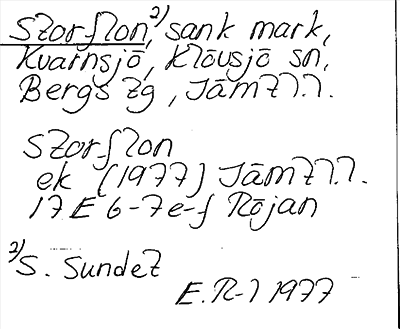 Storflon, 2) sank mark,
Kvarnsjö, Klövsjö sn,
Bergs tg, Jämtl.
Storflon
ek (1977) Jämtl.
17E 6-7e-f Röjan
2) S. Sundet
E.R-l 1977